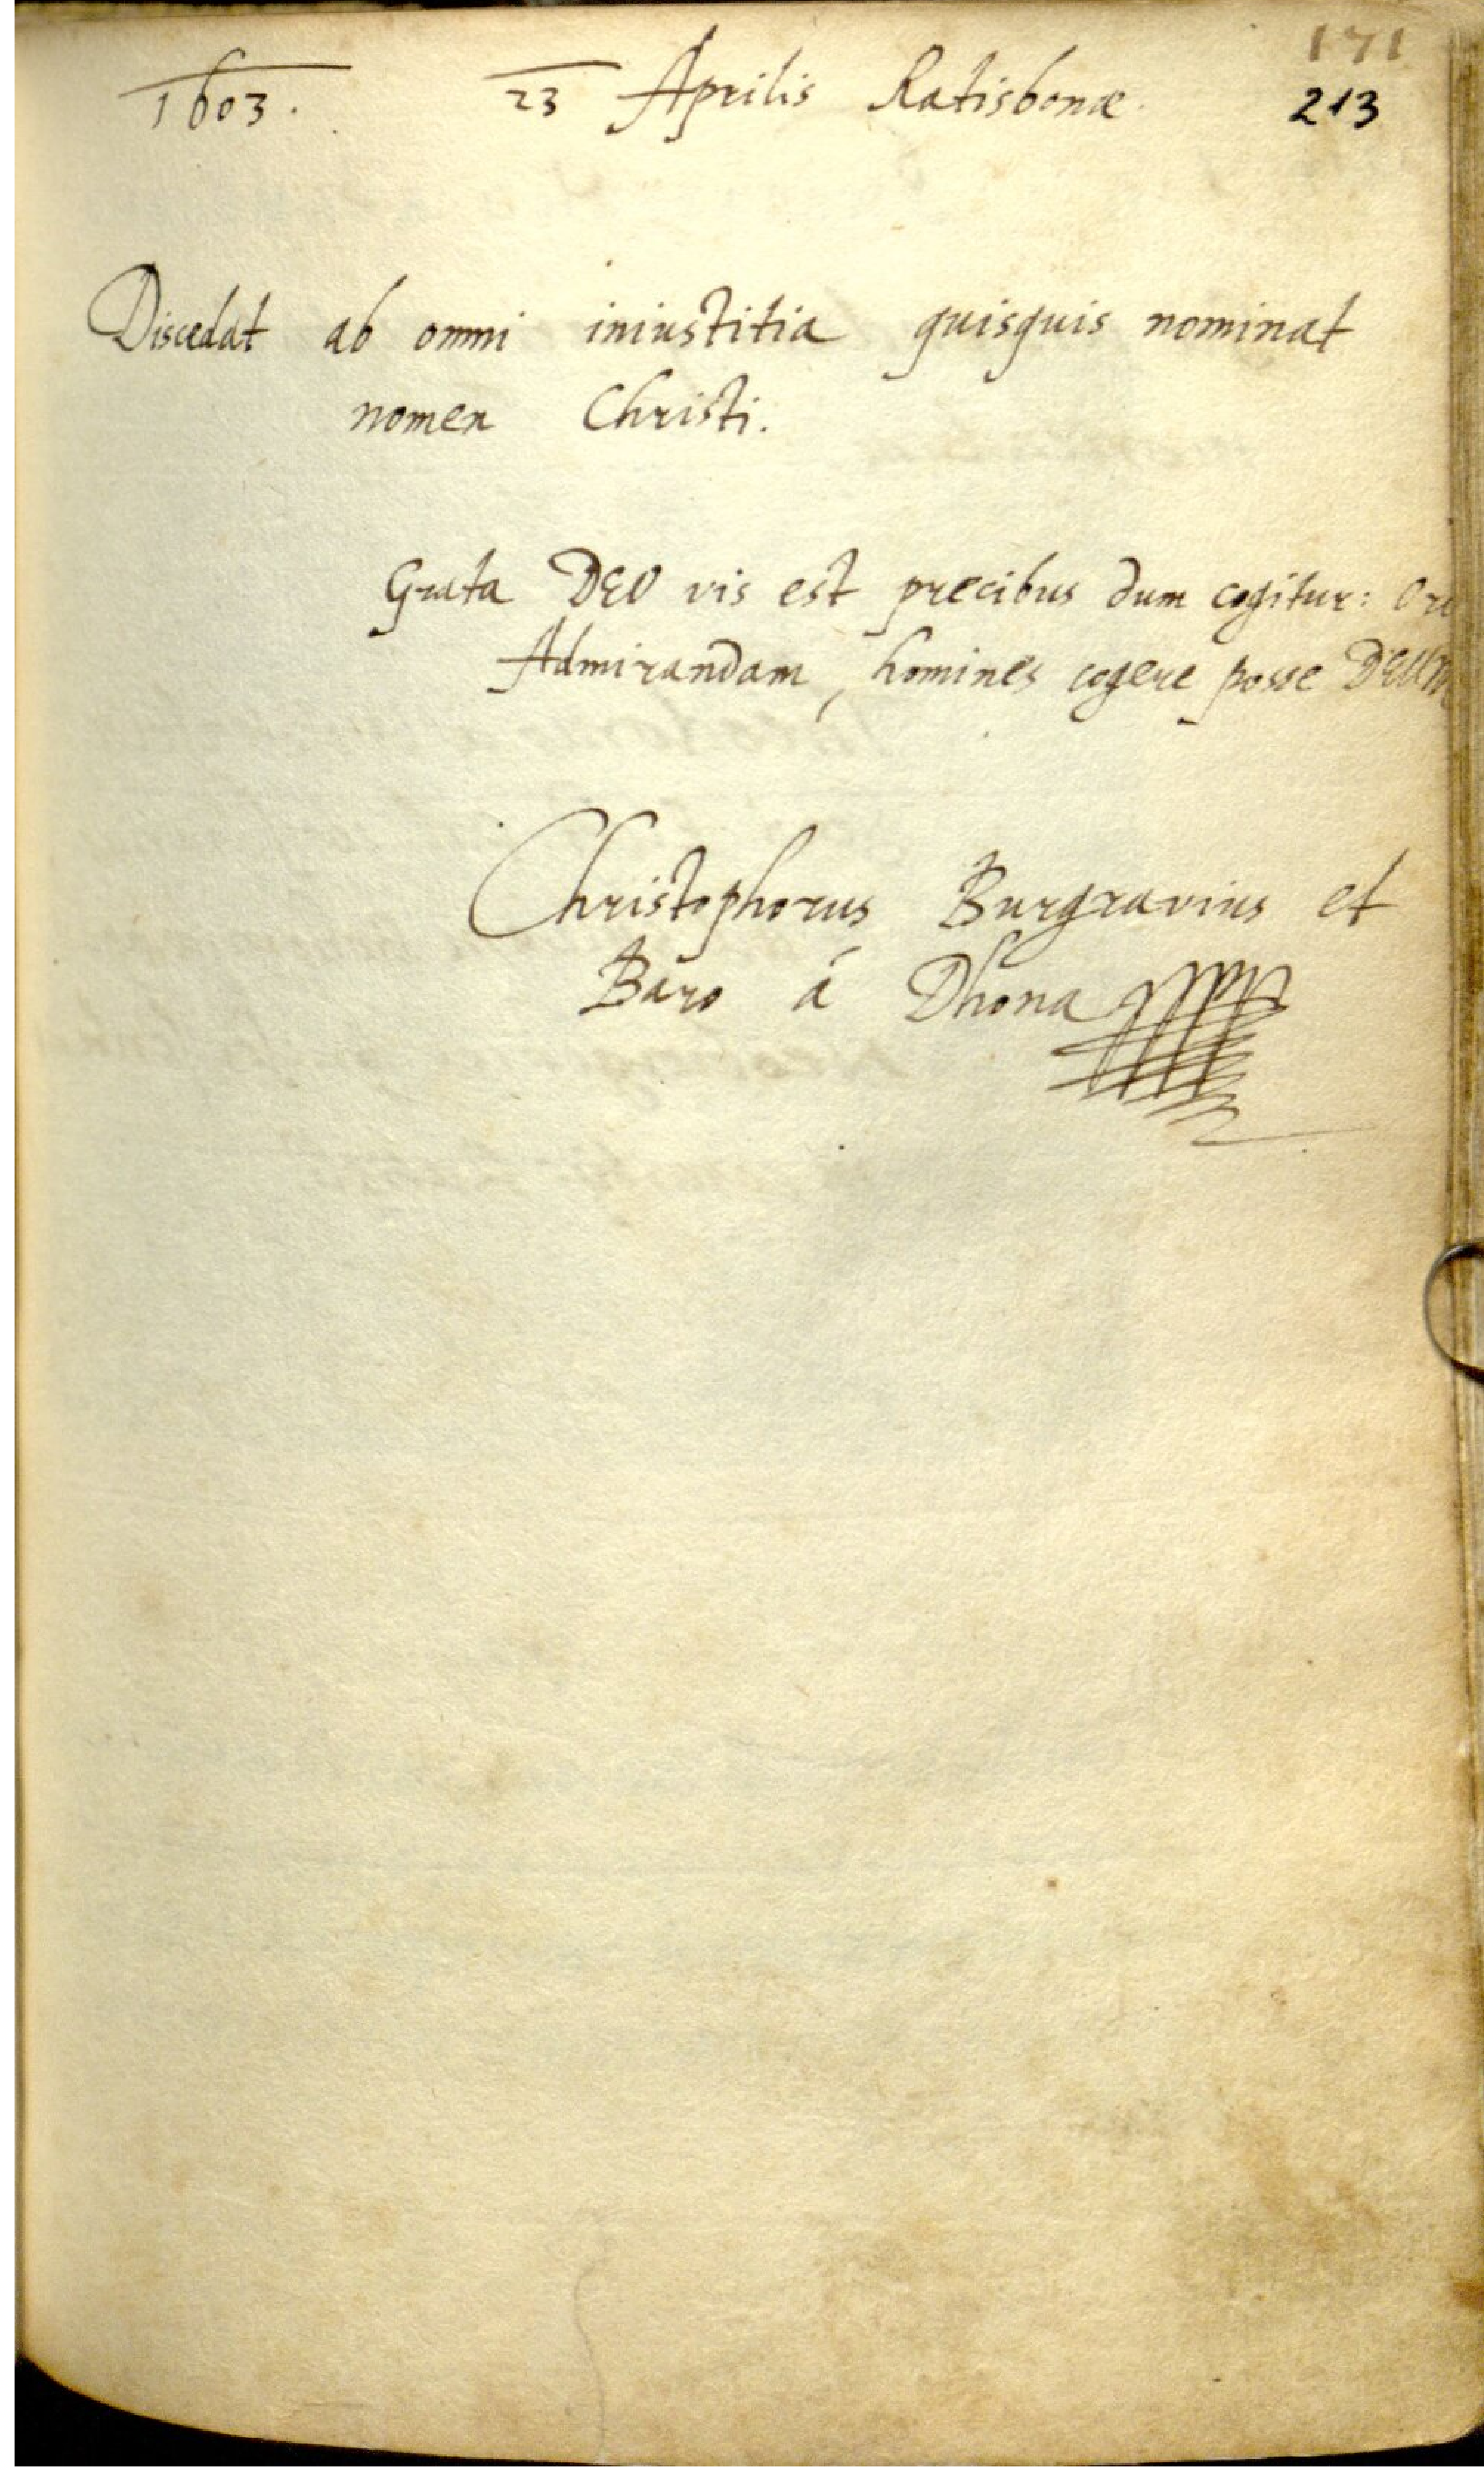 171
1603. 23 Aprilis Ratisbonæ. 213
Discedat ab omni iniustitia quisquis nominat
nomen Christi.
Grata DEO vis est precibus dum cogitur:
Admirandam, homines cogere posse DEUM
Christophorus Burgravius et
Baro á Dhona